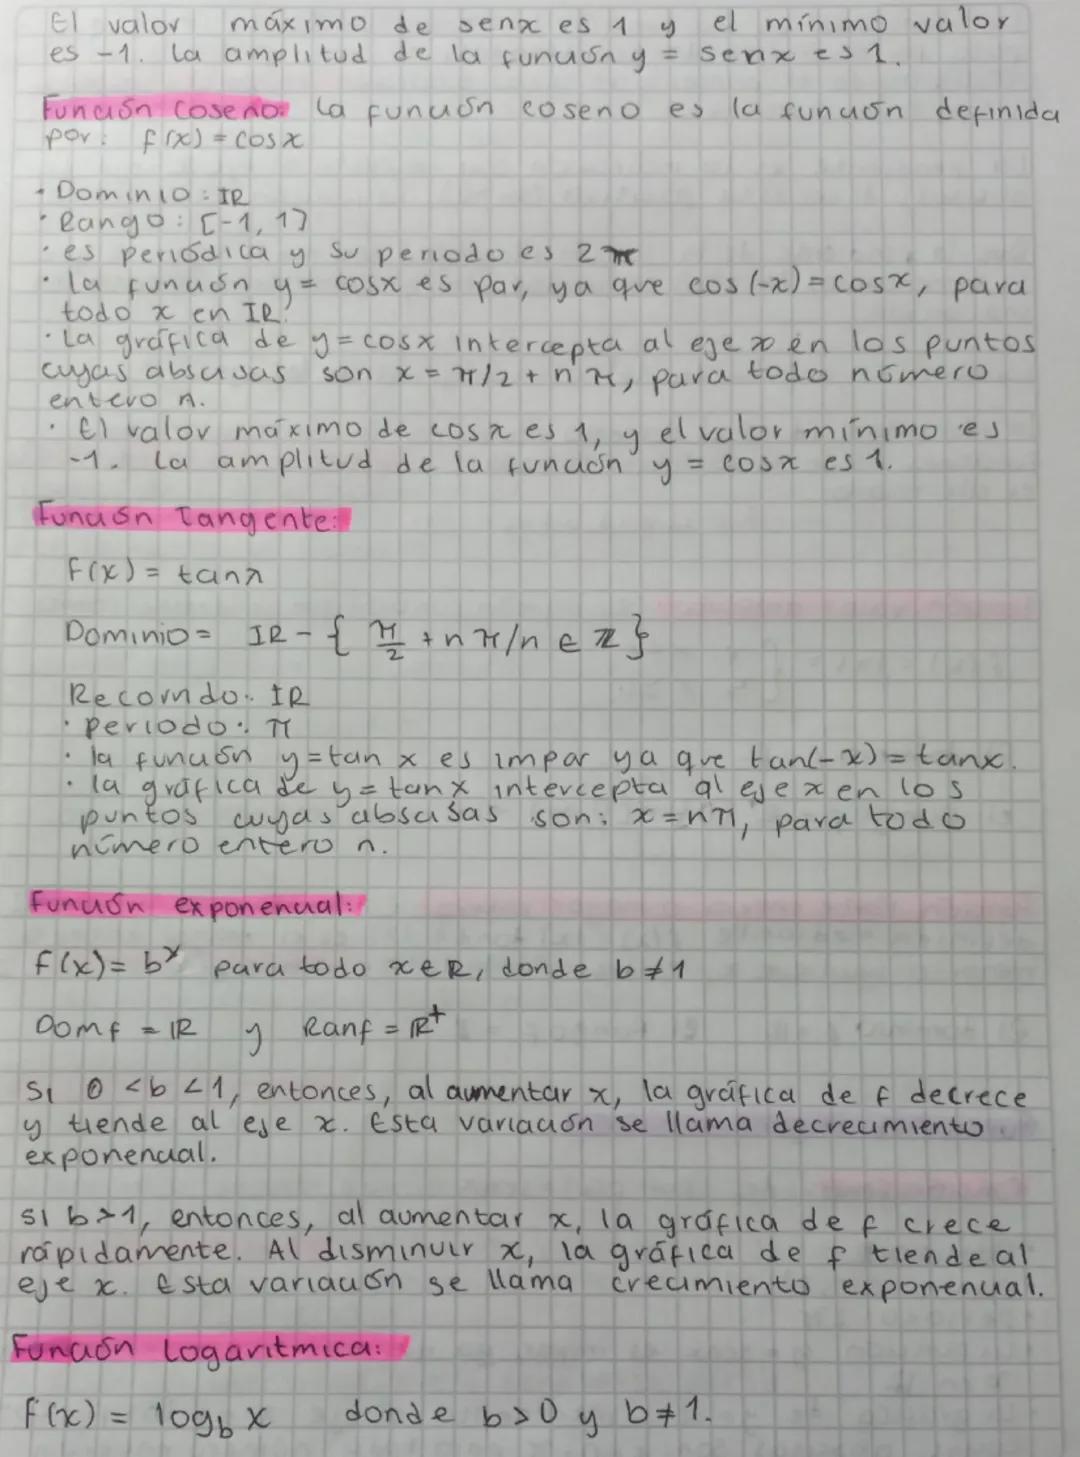 El valor máximo de senx es 1 y el mínimo valor
es -1. La amplitud de la función y = senx es 1.
Función Coseno: La función coseno es la función definida
por: f(x) = cosx
• Dominio: IR
• Rango: [-1, 1]
• es periódica y su periodo es 2π
• la función y = cosx es par, ya que cos(-x) = cosx, para
todo x en IR.
• La gráfica de y = cosx intercepta al eje x en los puntos
cuyas abscisas son x = π/2 + nπ, para todo número
entero n.
• El valor máximo de cosx es 1, y el valor mínimo es
-1. La amplitud de la función y = cosx es 1.
Función Tangente:
f(x) = tanx
Dominio = IR - { π/2 + nπ/n ∈ ℤ }
Recorrido: IR
• periodo: π
• la función y = tan x es impar ya que tan(-x) = tanx.
• la gráfica de y = tanx intercepta al eje x en los
puntos cuyas abscisas son: x = nπ, para todo
número entero n.
Función exponencial:
f(x) = bˣ para todo x∈R, donde b ≠ 1
Domf = IR y Ranf = IR⁺
Si 0 < b < 1, entonces, al aumentar x, la gráfica de f decrece
y tiende al eje x. Esta variación se llama decrecimiento
exponencial.
Si b > 1, entonces, al aumentar x, la gráfica de f crece
rápidamente. Al disminuir x, la gráfica de f tiende al
eje x. Esta variación se llama crecimiento exponencial.
Función Logarítmica:
f(x) = log_b x donde b > 0 y b ≠ 1.